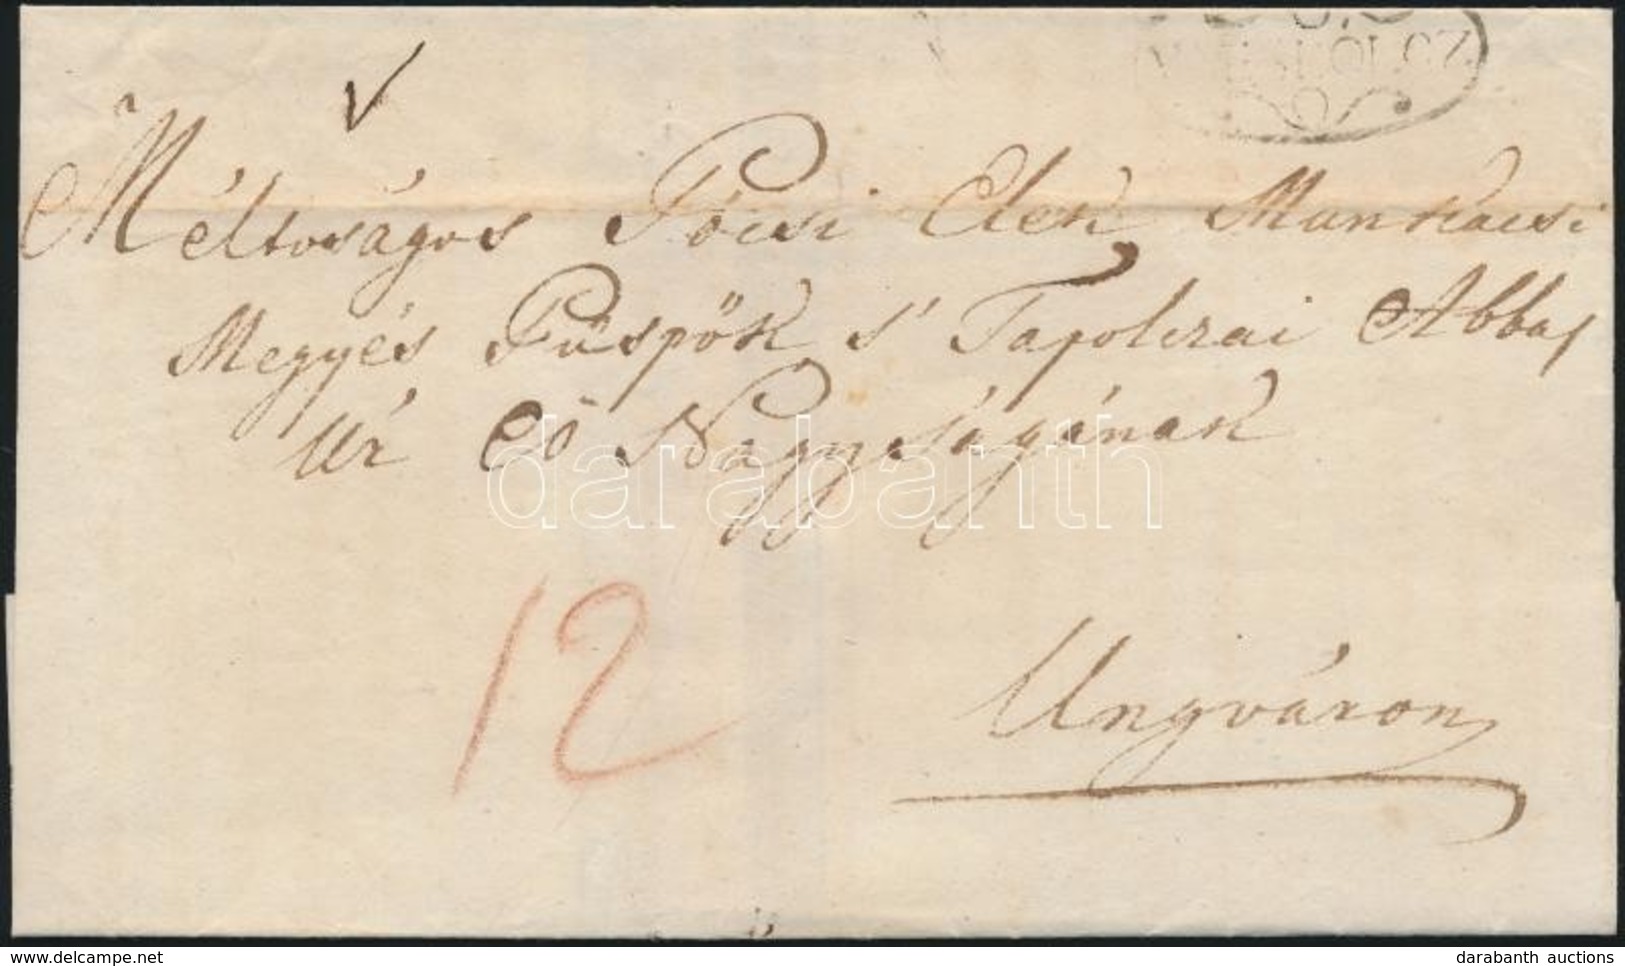 Méltoságos Pócsi Elek Munkacsi
Megyés Püspök s' Tapolczai Abbas
Úr Eő Nagyságának
darabanth
12
Ungváron
www.delcampe.net
darabanth auctions